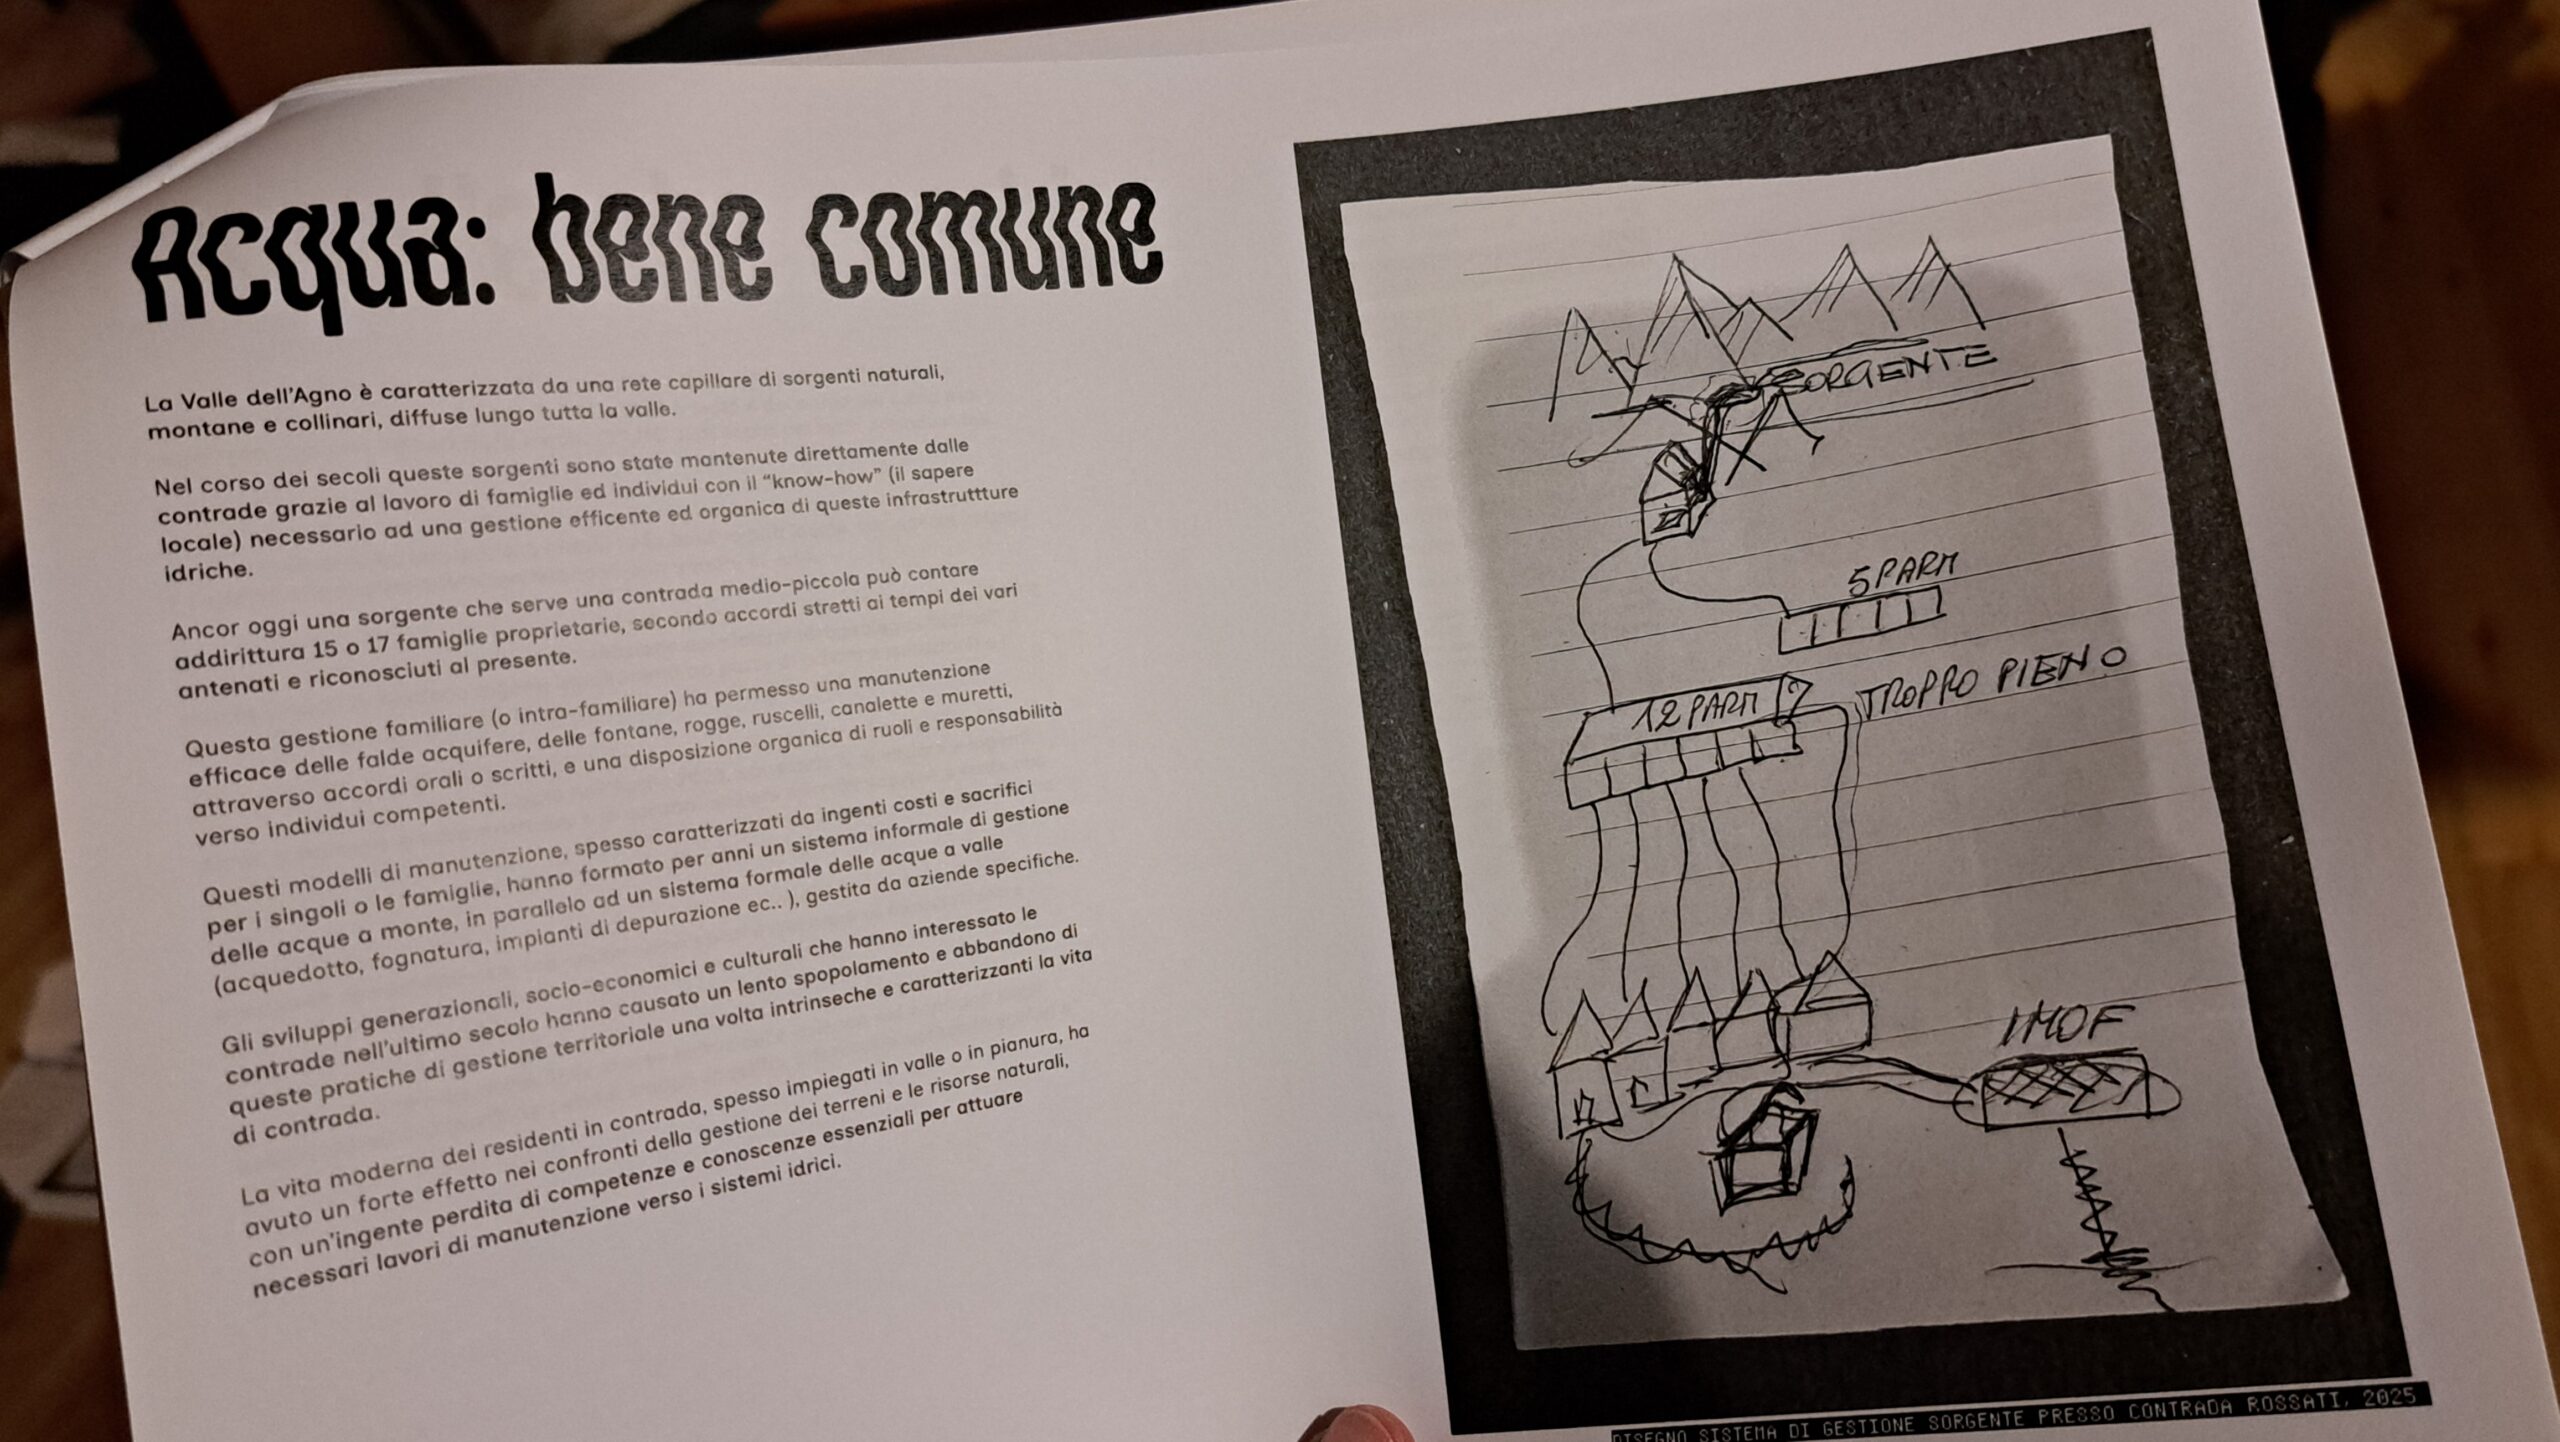 Acqua: bene comune
La Valle dell'Agno è caratterizzata da una rete capillare di sorgenti naturali,
montane e collinari, diffuse lungo tutta la valle.
Nel corso dei secoli queste sorgenti sono state mantenute direttamente dalle
contrade grazie al lavoro di famiglie ed individui con il “know-how” (il sapere
locale) necessario ad una gestione efficente ed organica di queste infrastruttture
idriche.
Ancor oggi una sorgente che serve una contrada medio-piccola può contare
addirittura 15 o 17 famiglie proprietarie, secondo accordi stretti ai tempi dei vari
antenati e riconosciuti al presente.
Questa gestione familiare (o intra-familiare) ha permesso una manutenzione
efficace delle falde acquifere, delle fontane, rogge, ruscelli, canalette e muretti,
attraverso accordi orali o scritti, e una disposizione organica di ruoli e responsabilità
verso individui competenti.
Questi modelli di manutenzione, spesso caratterizzati da ingenti costi e sacrifici
per i singoli o le famiglie, hanno formato per anni un sistema informale di gestione
delle acque a monte, in parallelo ad un sistema formale delle acque a valle
(acquedotto, fognatura, impianti di depurazione ec.. ), gestita da aziende specifiche.
Gli sviluppi generazionali, socio-economici e culturali che hanno interessato le
contrade nell'ultimo secolo hanno causato un lento spopolamento e abbandono di
queste pratiche di gestione territoriale una volta intrinseche e caratterizzanti la vita
di contrada.
La vita moderna dei residenti in contrada, spesso impiegati in valle o in pianura, ha
avuto un forte effetto nei confronti della gestione dei terreni e le risorse naturali,
con un'ingente perdita di competenze e conoscenze essenziali per attuare
necessari lavori di manutenzione verso i sistemi idrici.
SORGENTE
5 PARTI
12 PARTI
TROPPO PIENO
IMOF
DISEGNO SISTEMA DI GESTIONE SORGENTE PRESSO CONTRADA ROSSATI, 2025